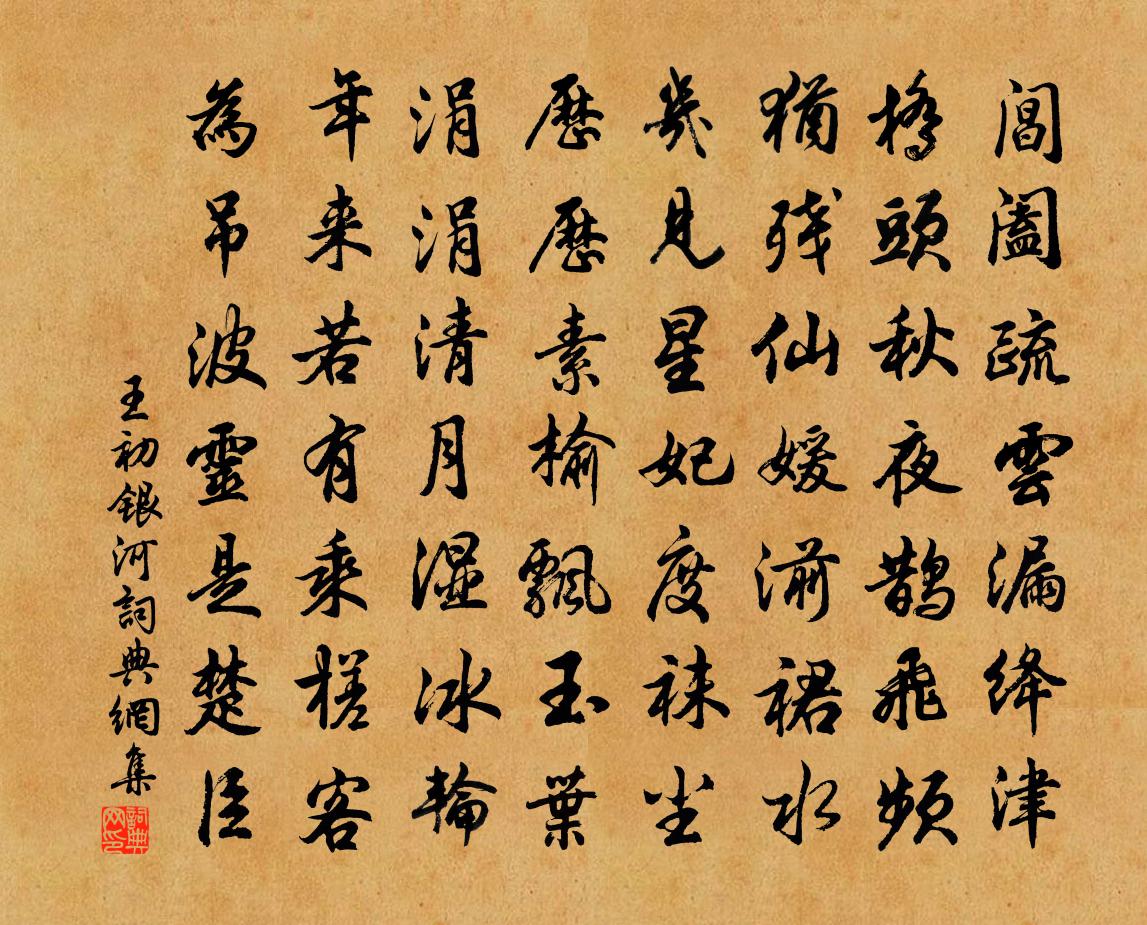 閶闔疏雲漏绛津
橋頭秋夜鵲飛頻
猶残仙媛湔裙水
幾見星妃度袜尘
歷歷素榆飄玉葉
涓涓清月湿冰輪
年来若有乘槎客
為吊波靈是楚臣
王初銀河詞典網集
詞典网印